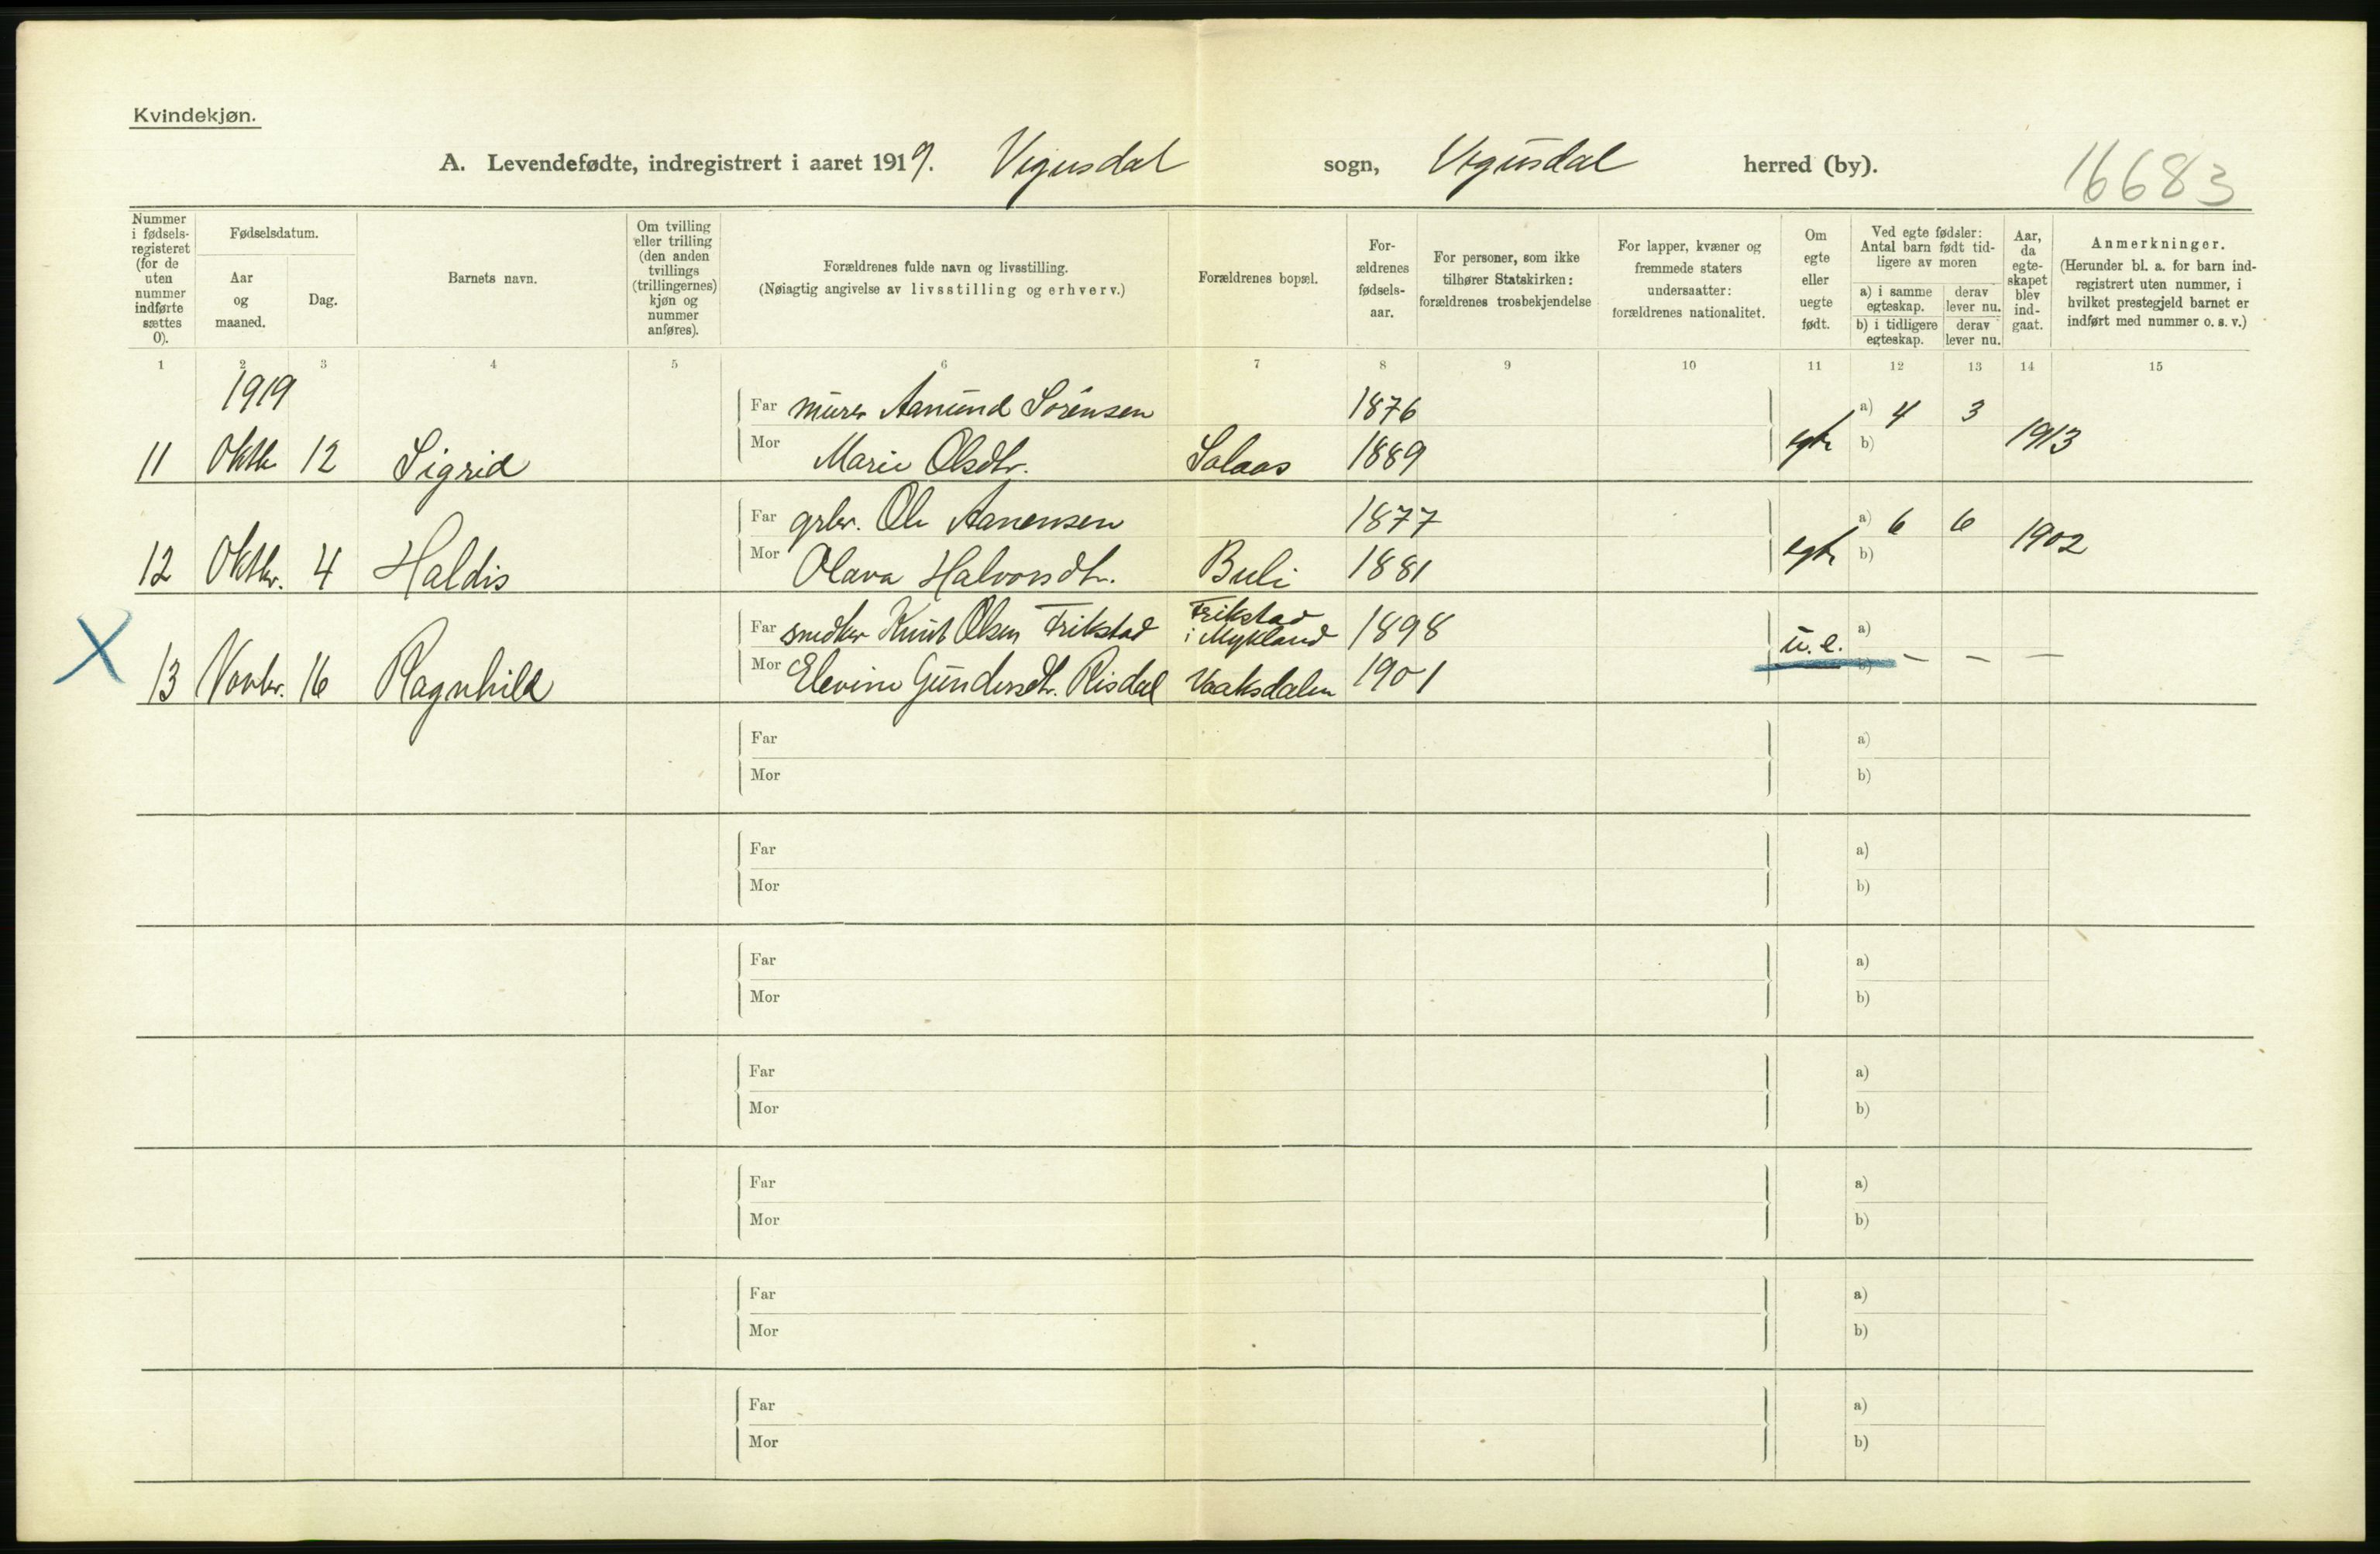 Kvindekjøn.
A. Levendefødte, indregistrert i aaret 1919. Vegusdal sogn, Vegusdal herred (by). 16683
Nummer i fødsels-registeret (for de uten nummer indførte sættes 0).
Fødselsdatum.
Aar og maaned.
Dag.
Barnets navn.
Om tvilling eller trilling (den anden tvillings (trillingernes) kjøn og nummer anføres).
Forældrenes fulde navn og livsstilling.
(Nøiagtig angivelse av livsstilling og erhverv.)
Forældrenes bopæl.
For-ældrenes fødsels-aar.
For personer, som ikke tilhører Statskirken: forældrenes trosbekjendelse
For lapper, kvæner og fremmede staters undersaatter: forældrenes nationalitet.
Om egte eller uegte født.
Ved egte fødsler: Antal barn født tid-ligere av moren
a) i samme egteskap.
derav lever nu.
b) i tidligere egteskap.
derav lever nu.
Aar, da egte-skapet blev ind-gaat.
Anmerkninger.
(Herunder bl. a. for barn ind-registrert uten nummer, i hvilket prestegjeld barnet er indført med nummer o. s. v.)
1 2 3 4 5 6 7 8 9 10 11 12 13 14 15
1919
Far murer Aanund Sørensen 1876 a) 4 3
11 Oktb. 12 Sigrid Mor Marie Olsdtr. Solaas 1889 egte b) 1913
Far grbr. Ole Aanensen 1877 a) 6 6
12 Oktbr. 4 Haldis Mor Olava Halvorsdtr. Buli 1881 egte b) 1902
Far snedker Knut Olsen Frikstad Frikstad i Mykland 1898 a)
X 13 Novbr. 16 Ragnhild Mor Elevine Gundersdtr. Risdal Vaaksdalen 1901 u.e. b) – – –
Far a)
Mor b)
Far a)
Mor b)
Far a)
Mor b)
Far a)
Mor b)
Far a)
Mor b)
Far a)
Mor b)
Far a)
Mor b)